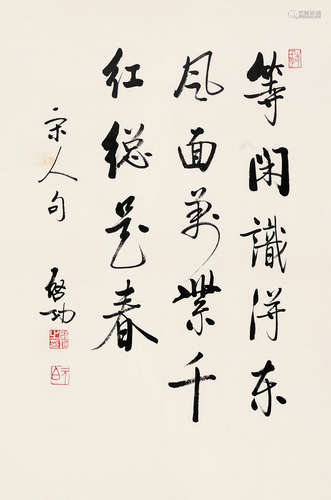 等闲識得东
风面万紫千
红総是春
宋人句
启功